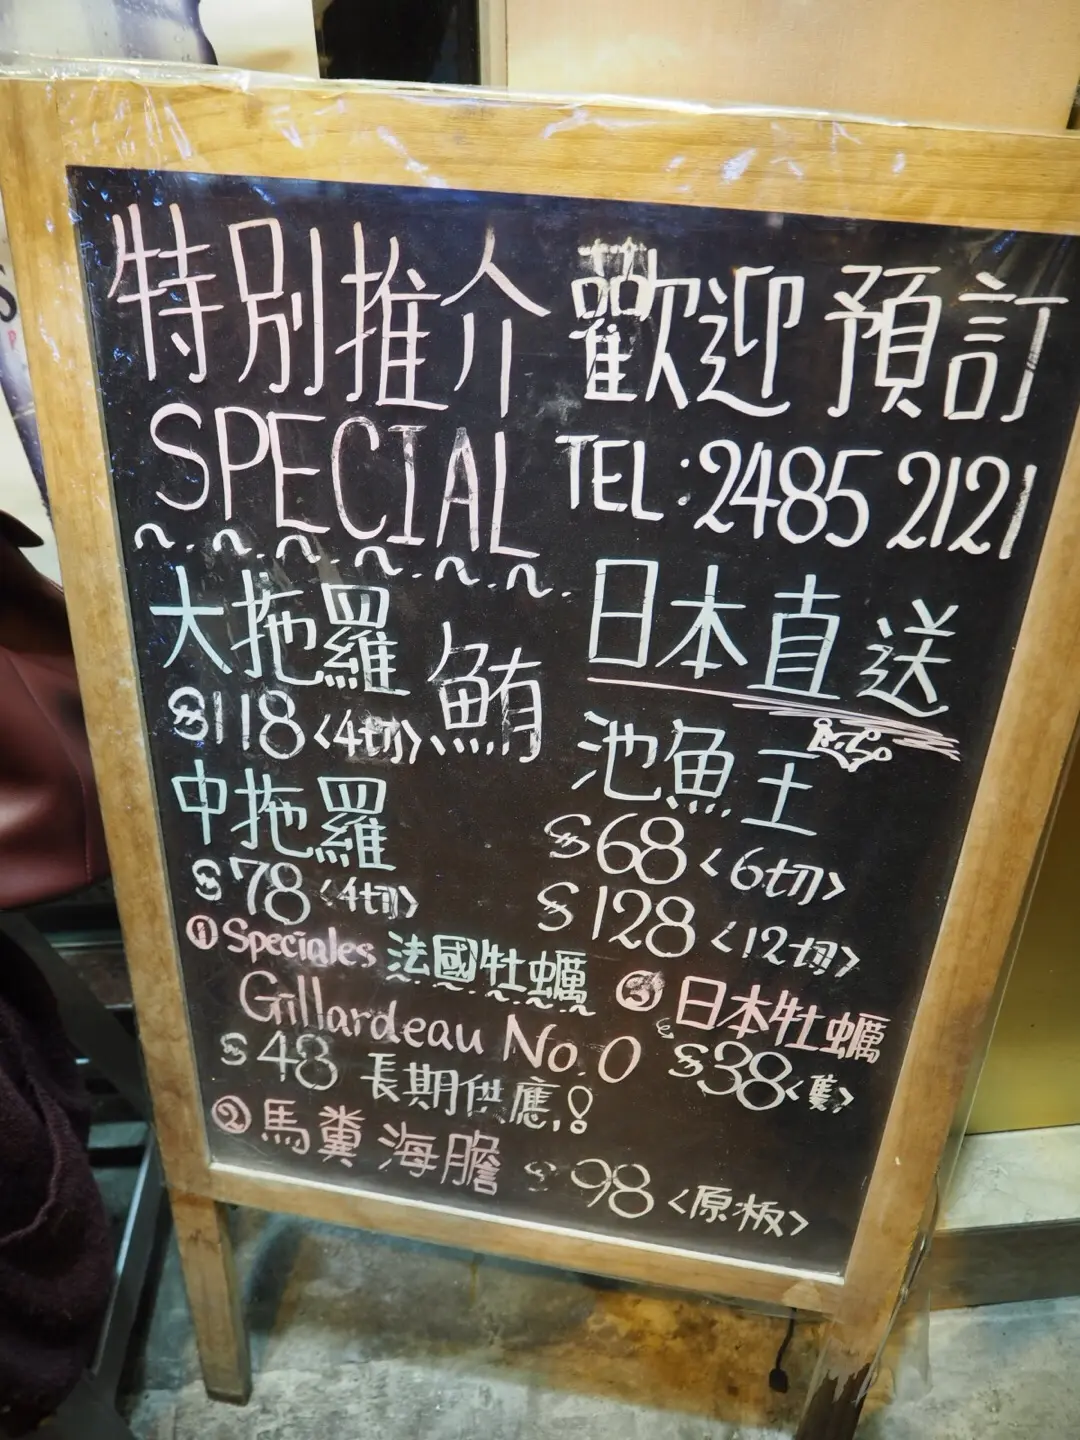 特別推介
SPECIAL
歡迎預訂
TEL:2485 2121
大拖羅
$118<4切>
鮪
中拖羅
$78<4切>
日本直送
池魚王
$68<6切>
$128<12切>
①Speciales 法國牡蠣
Gillardeau No.0
$48 長期供應!
③日本牡蠣
$38<隻>
②馬糞海膽 $98<原板>